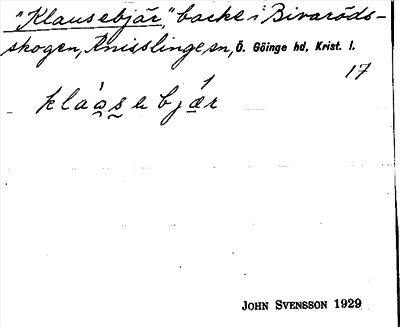 "Klausebjär," backe i Bivaröds-
skogen, Knisslinge sn, Ö. Göinge hd, Krist. l.
17
JOHN SVENSSON 1929